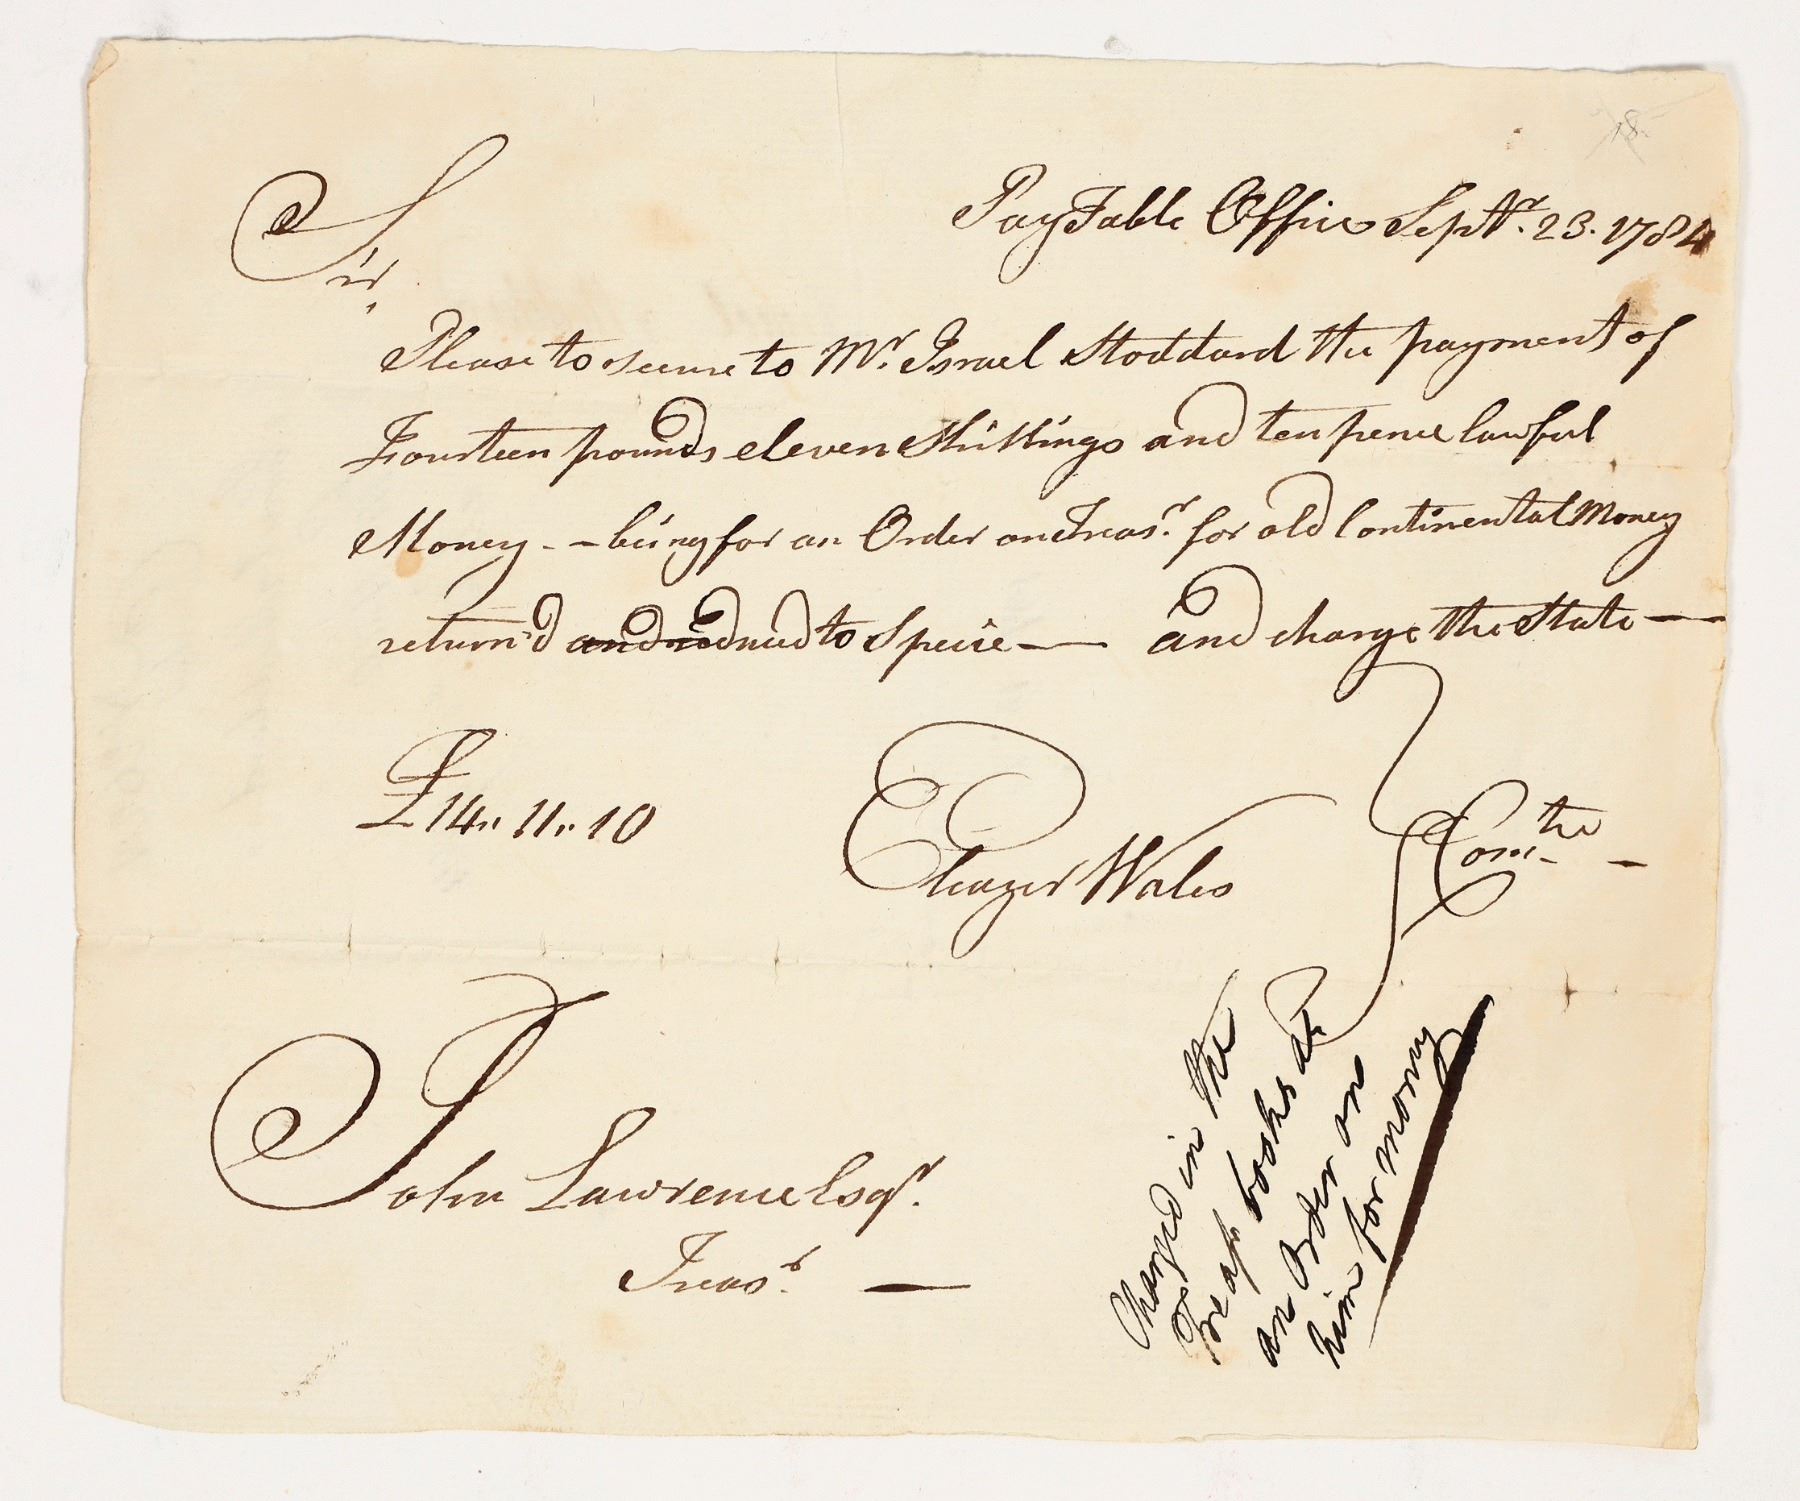 Pay Table Office Septr. 23. 1784
Sir,
Please to secure to Mr. Israel Stoddard the payment of
Fourteen pounds eleven Shillings and ten pence lawful
Money - - being for an Order on Treasr. for old Continental Money
return'd and reduced to Specie — and charge the State —
£14,, 11,, 10
Eleazer Wales Comtee —
John Lawrence Esqr.
Treasr. —
Charged in the
books as
an Order on
him for money